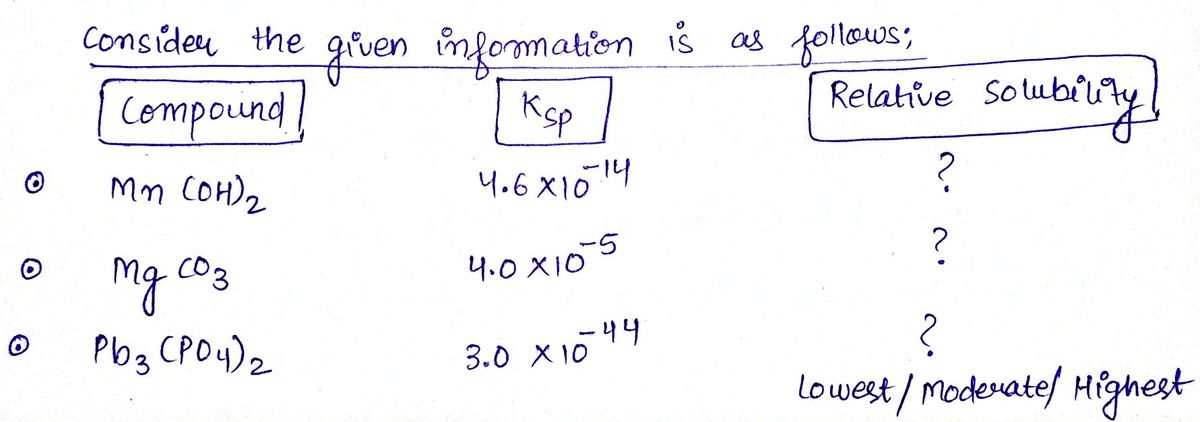 Consider the given information is as follows;
Compound Ksp Relative Solubility
Mn (OH)2 4.6 ×10^-14 ?
Mg CO3 4.0 ×10^-5 ?
Pb3 (PO4)2 3.0 ×10^-44 ?
Lowest / Moderate / Highest